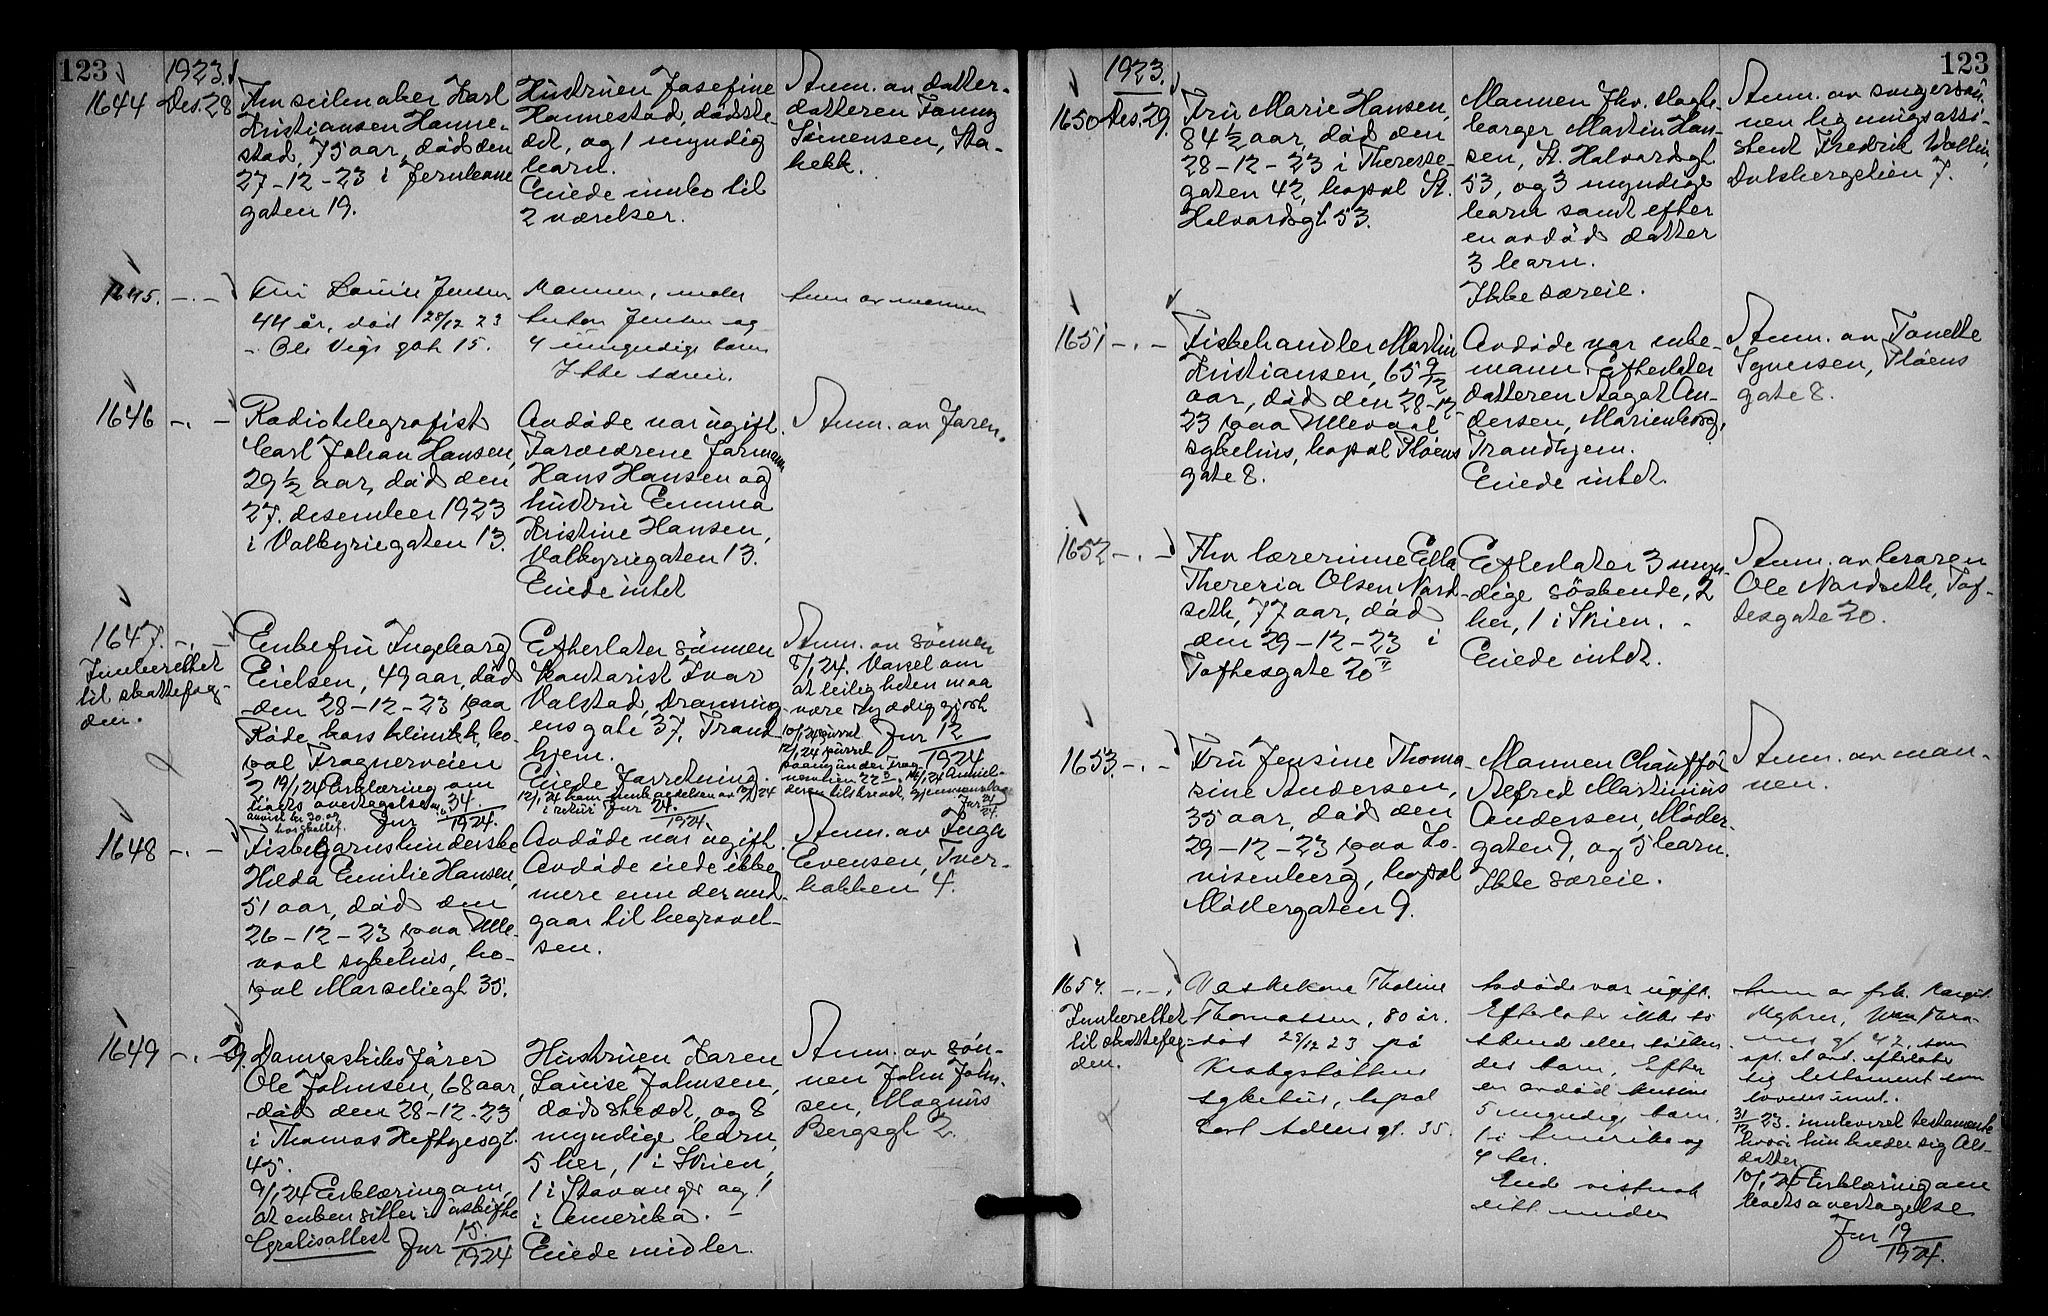 123
1923.
1644 Des. 28
Fhv seilmaker Karl
Kristiansen Hanne-
stad, 75 aar, død den
27-12-23 i Jernbane
gaten 19.
Hustruen Josefine
Hannestad, dødste-
det, og 1 myndig
barn.
Eiede innbo til
2 værelser.
Anm. av datter-
datteren Fanny
Simensen, Sta-
bekk.
1645. -.-
Fru Louise Jensen
44 år, død 28/12 23
- Ole Vigs gate 15.
Mannen, maler
Anton Jensen og
4 umyndige barn
Ikke særeie.
Anm av mannen
1646 -.-
Radiotelegrafist
Carl Johan Hansen,
29 1/2 aar, død den
27. desember 1923
i Valkyriegaten 13.
Avdøde var ugift.
Forældrene formann
Hans Hansen og
hustru Emma
Kristine Hansen,
Valkyriegaten 13.
Eiede intet
Anm. av faren.
1647. -.-
Innberettet
til skattefog-
den.
Enkefru Ingeborg
Eielsen, 49 aar, død
den 28-12-23 paa
Røde kors klinikk, bo-
pæl Frognerveien
2 19/1 24 Erklæring om
boets overtagelse
Jnr 34./1924.
Efterlater sønnen
kontorist Ivar
Valstad, Dronning
ens gate 37, Trond
hjem.
Eiede forretning.
i retur Jnr 24./1924.
Anm. av sønnen
8/1 24. Varsel om
at leiligheten maa
være ryddiggjort
Jnr 12/1924
10/1 24 purret
12/1 24 purret
1648 -.-
Fisk&garnbinderske
Hilda Emilie Hansen,
51 aar, død den
26-12-23 paa Ulle-
vaal sykehus, bo-
pæl Marseliegt 35.
Avdøde var ugift.
Avdøde eiede ikke
mere enn der med-
gaar til begravel-
sen.
Anm. av Inga
Evensen, Tver-
bakken 4.
1649 -.- 29.
Damaskibsfører
Ole Johnsen, 68 aar,
død den 28-12-23
i Thomas Heftyesgt.
45.
9/1 24 Erklæring om,
at enken sitter i uskifte
Gratisattest Jnr 15./1924
Hustruen Karen
Louise Johnsen,
dødsstedet, og 8
myndige barn,
5 her, 1 i Skien,
1 i Stavanger og 1
i Amerika. -
Eiede midler.
Anm. av søn-
nen John John-
sen, Magnus
Bergsgt. 2.
123
1923.
1650 Des. 29.
Fru Marie Hansen,
84 1/2 aar, død den
28-12-23 i Therese-
gaten 42, bopæl St.
Halvardsgt 53.
Mannen fhv. stogh-
borger Martin Han-
sen, St. Halvardsgt.
53, og 3 myndige
barn samt efter
en avdød datter
3 barn.
Ikke særeie.
Anm. av svigersøn-
nen ligningsassi-
stent Fredrik Wollin,
7.
1651 -.-
Fiskehandler Martin
Kristiansen, 65 9/12
aar, død den 28-12-
23 paa Ullevaal
sykehus, bopæl Fløens
gate 8.
Avdøde var enke-
mann. Efterlater
datteren Aagot An-
dersen, Marienborg,
Trondhjem.
Eiede intet.
Anm. av Tonette
Syversen, Fløens
gate 8.
1652 -.-
Fhv lærerinne Ella
Theresia Olsen Nord-
seth, 77 aar, død
den 29-12-23 i
Toftesgate 20 II
Efterlater 3 myn-
dige søskende, 2
her, 1 i Skien. -
Eiede intet.
Anm. av broren
Ole Nordseth, Tof-
tesgate 20.
1653. -.-
Fru Jensine Thoma-
sine Andersen,
35 aar, død den
29-12-23 paa Lo-
visenberg, bopæl
Møllergaten 9.
Mannen Chauffør
Alfred Martinius
Andersen, Møller-
gaten 9, og 5 barn.
Ikke særeie.
Anm. av man-
nen.
1654. -.-
Innberettet
til skattefog-
den.
Vaskekone Thaline
Thomassen, 80 år.
død 29/12 23 på
Krohgstøttens
sykehus, bopæl
Carl Adlers gt. 35.
Avdøde var ugift.
Efterlater ikke sø-
skend eller
des barn, Efter
en avdød kusine
5 myndige barn.
1 i Amerika og
4 her.
Eiede vistnok
litt midler
Anm av frk. Margit
Myhrer,
42, som
opl. at avd. efterlater
sig testament som
loves innl.
31/12 23. innleveret testamente
hvori hun kaller sig Ols-
datter
10/1 24 Erklæring om
boets overtagelse
Jnr 19/1924.